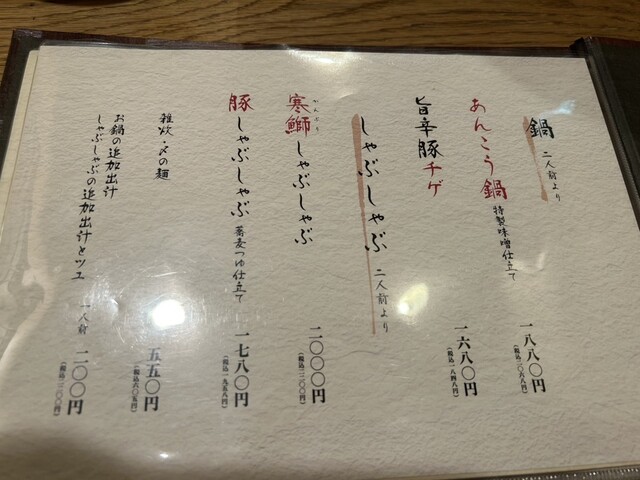 鍋 二人前より
あんこう鍋 特製味噌仕立て 一八八〇円
（税込二〇六八円）
旨辛豚チゲ 一六八〇円
（税込一八四八円）
しゃぶしゃぶ 二人前より
かんぶり
寒鰤しゃぶしゃぶ 二〇〇〇円
（税込二二〇〇円）
豚しゃぶしゃぶ 蕎麦つゆ仕立て 一七八〇円
（税込一九五八円）
雑炊・〆の麺 五五〇円
（税込六〇五円）
お鍋の追加出汁
しゃぶしゃぶの追加出汁とツユ 一人前 二〇〇円
（税込二二〇円）